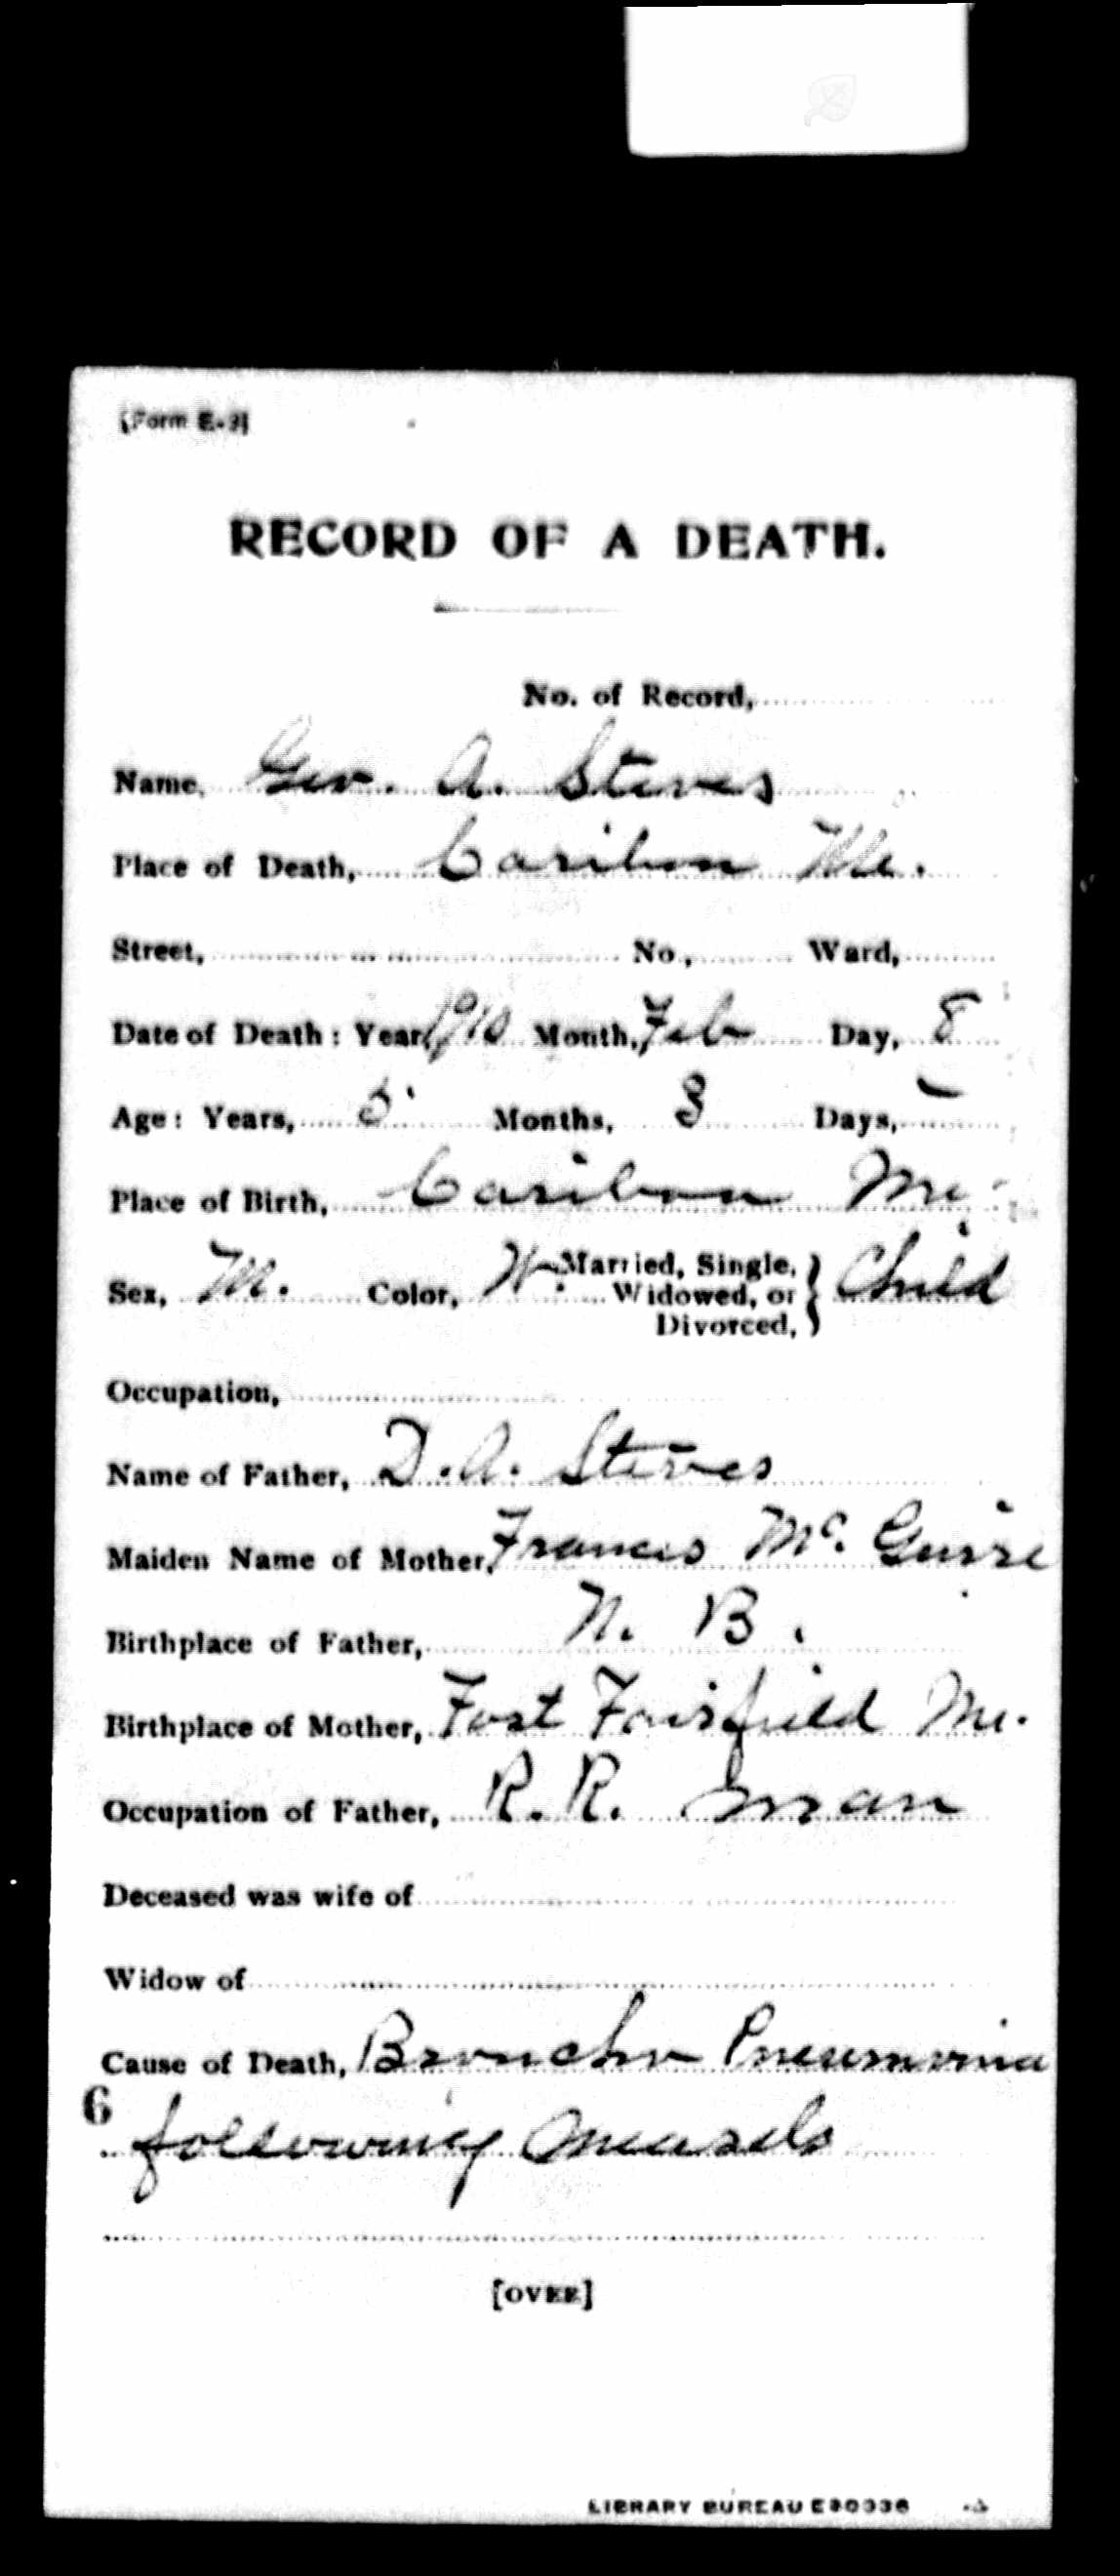 [Form E-3]
RECORD OF A DEATH.
No. of Record,
Name, Geo. A. Steves
Place of Death, Caribou Me.
Street, No., Ward,
Date of Death: Year, 1910 Month, Feb Day, 8
Age: Years, 5 Months, 3 Days, –
Place of Birth, Caribou Me.
Sex, M. Color, W. Married, Single, Widowed, or Divorced, } Child
Occupation,
Name of Father, D. A. Steves
Maiden Name of Mother, Francis Mc. Guire
Birthplace of Father, N. B.
Birthplace of Mother, Fort Fairfield Me.
Occupation of Father, R. R. man
Deceased was wife of
Widow of
Cause of Death, Broncho Pneumonia
6
following Measels
[OVER]
LIBRARY BUREAU